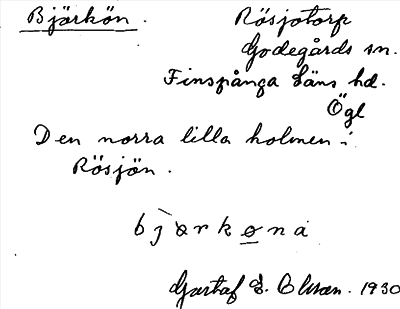 Björkön.
Rösjötorp
Godegårds sn.
Finspånga Läns hd.
Ögl
Den norra lilla holmen i
Rösjön.
Gustaf E. Olsson. 1930